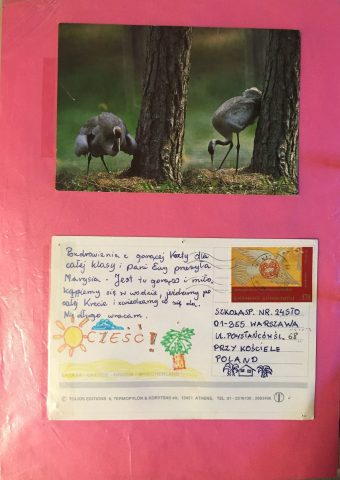 Pozdrowienia z gorącej Krety dla
całej klasy i Pani Ewy przesyła
Marysia. Jest tu gorąco i miło,
kąpiemy się w wodzie, jeździmy po
całej Krecie i zwiedzamy co się da.
Nie długo wracam.
CZEŚĆ!
SZKOŁA SP. NR. 24 STO
01-365 WARSZAWA
UL. POWSTAŃCÓW ŚL. 68
PRZY KOŚCIELE
POLAND
© TOLIOS EDITIONS 5, TERMOPYLON & KORYTSAS str, 13451 ATHENS,